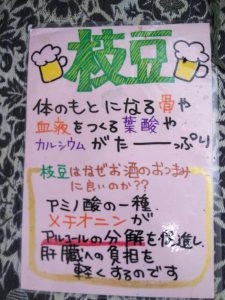 枝豆
体のもとになる骨や
血液をつくる葉酸や
カルシウムがたーーっぷり
枝豆はなぜお酒のおつまみ
に良いのか??
アミノ酸の一種
メチオニンが
アルコールの分解を促進し、
肝臓への負担を
軽くするのです